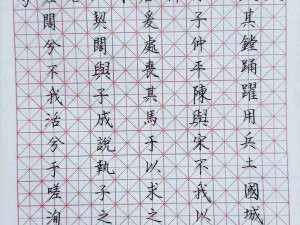 其鏜踊躍用兵土國城
子仲平陳與宋不我以
爰處喪其馬于以求之
契闊與子成說執子之
闊兮不我活兮于嗟洵